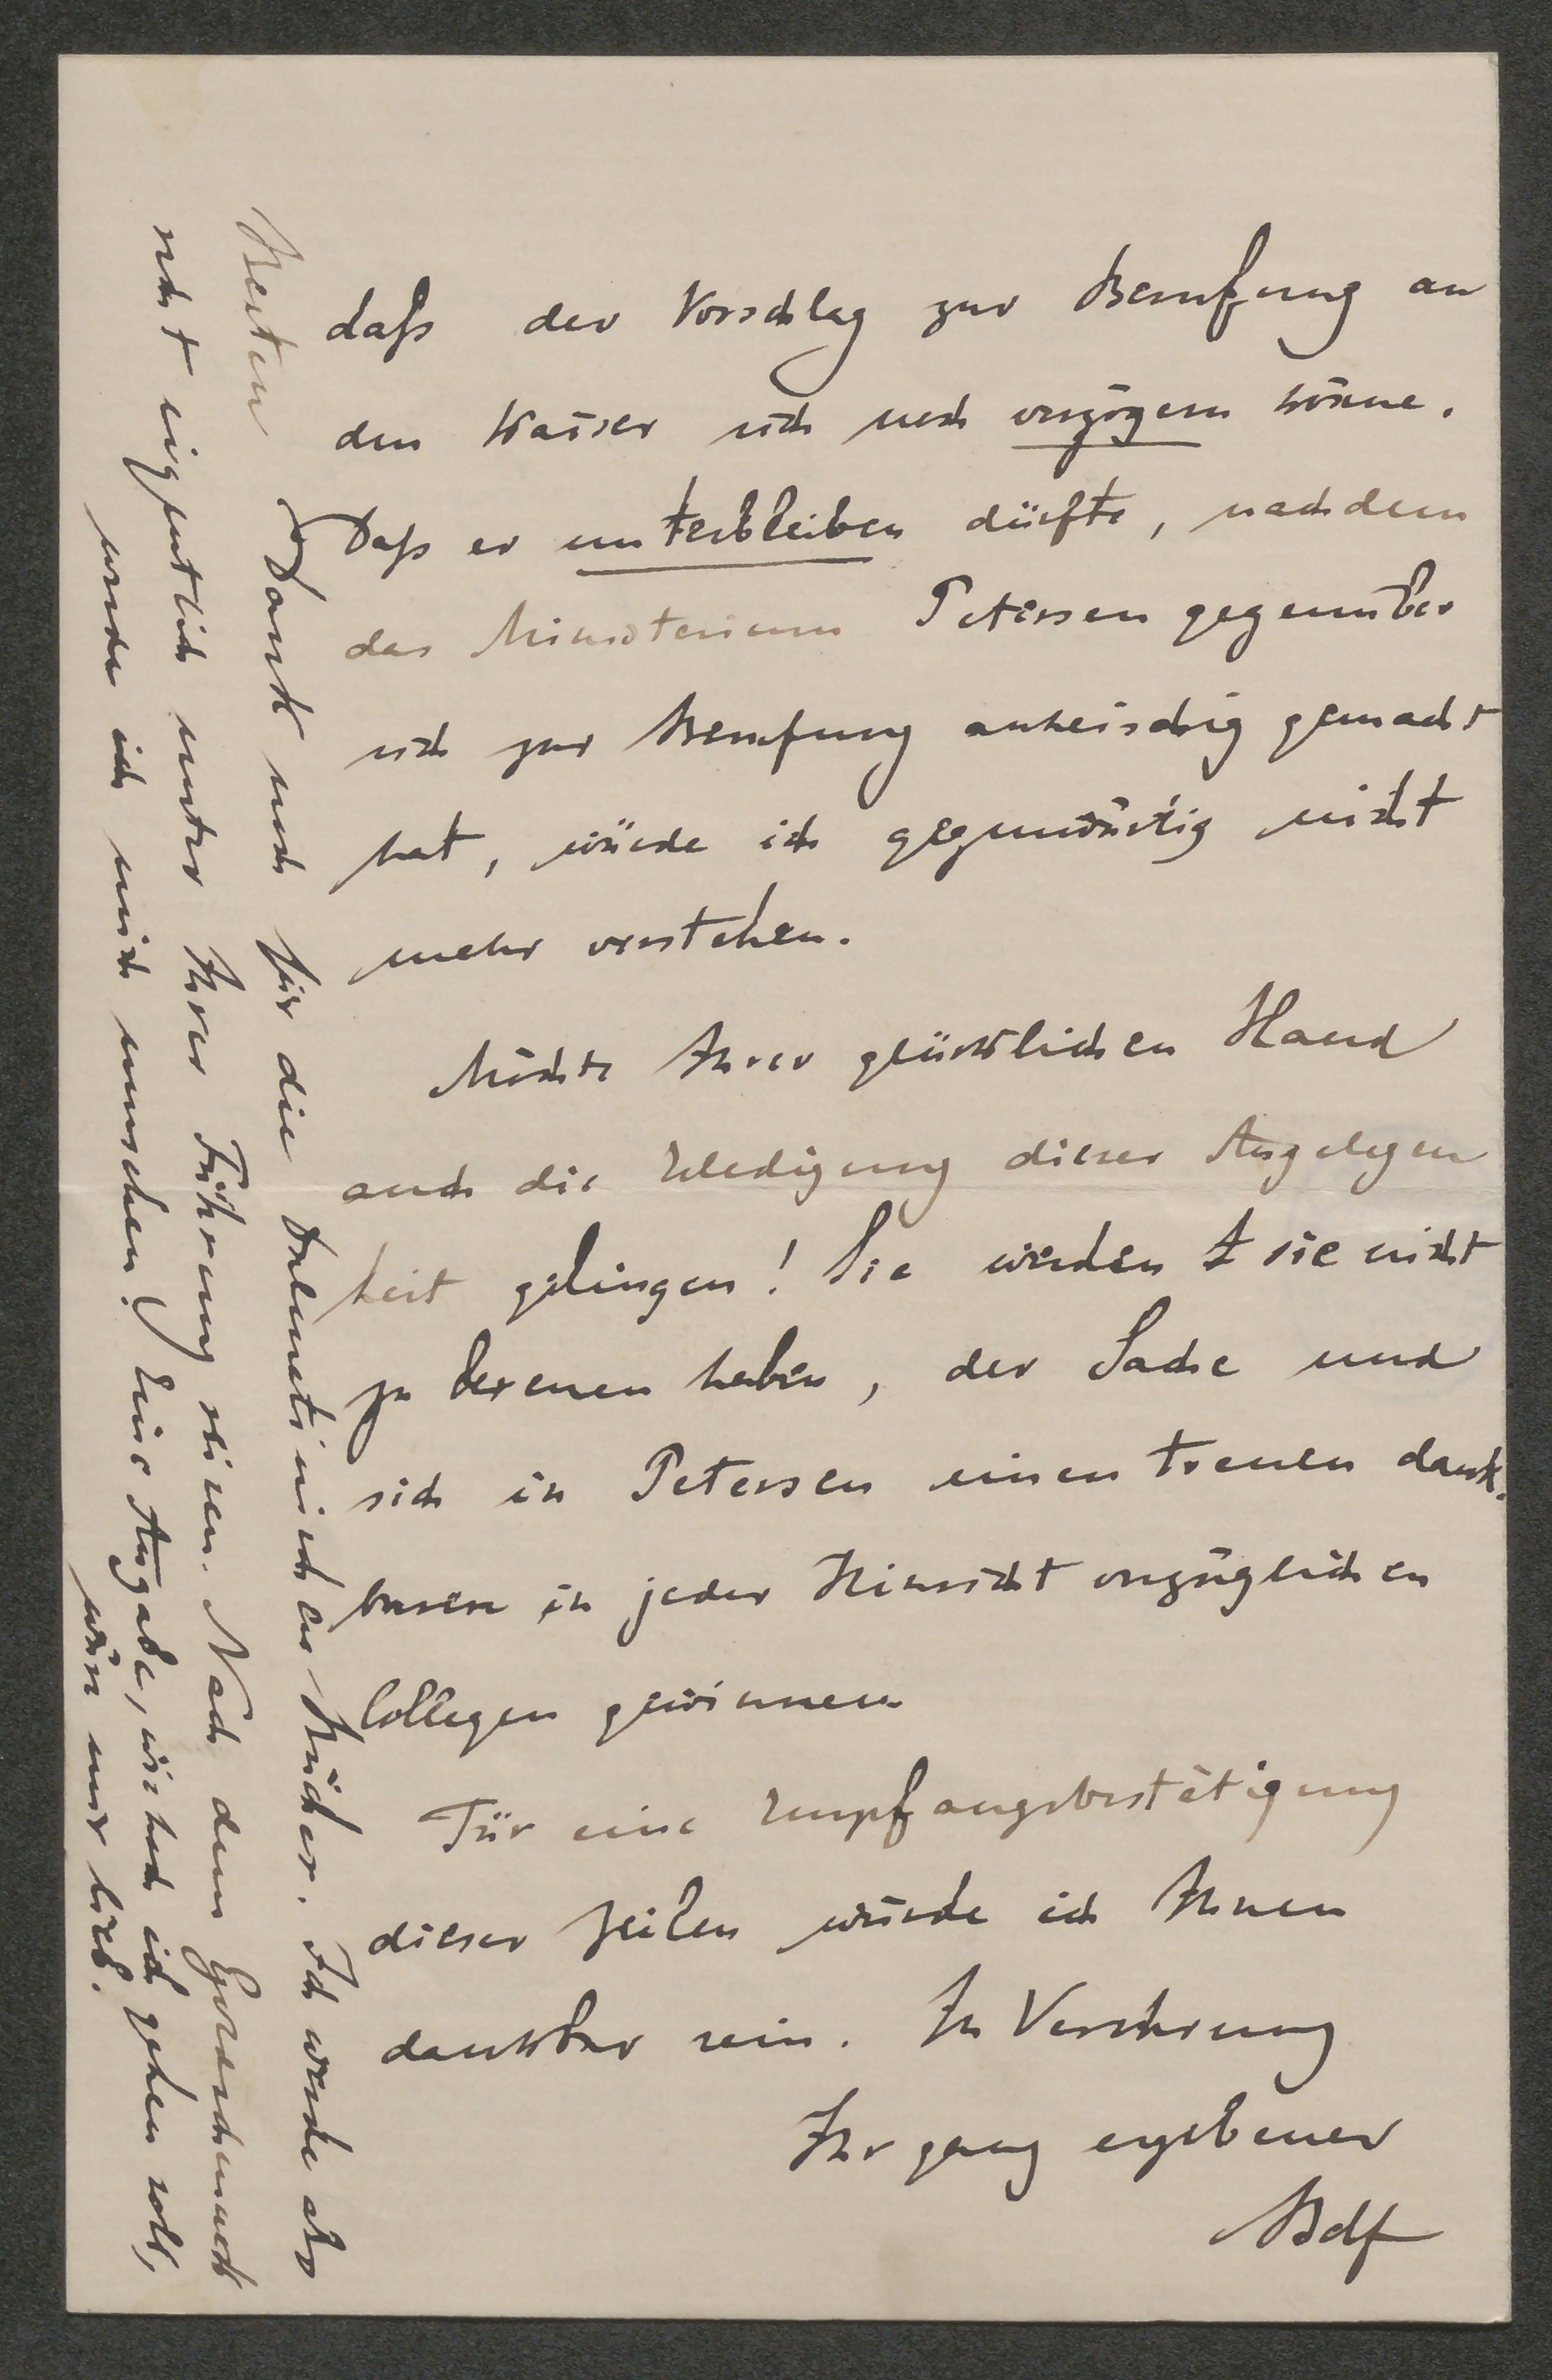 daß der Vorschlag zur Berufung an
den Kaiser sich noch verzögern könne.
Daß er unterbleiben dürfte, nachdem
das Ministerium Petersen gegenüber
sich zur Berufung anheischig gemacht
hat, würde ich gegenwärtig nicht
mehr verstehen.
Möchte Ihrer glücklichen Hand
auch die Erledigung dieser Angelegen
heit gelingen! Sie werden sie nicht
zu bereuen haben, der Sache und
sich in Petersen einen treuen dank-
baren in jeder Hinsicht vorzüglichen
Collegen gewinnen
Für eine Empfangsbestätigung
dieser Zeilen würde ich Ihnen
dankbar sein. In Verehrung
Ihr ganz ergebener
Bdf
Besten Dank noch für die Dalmatinischen Bücher. Ich werde aber
nicht eigentlich unter Ihrer Führung reisen. Nach dem
werde ich mich umsehen! Eine Angabe, wohin ich gehen soll,
wär mir lieb.